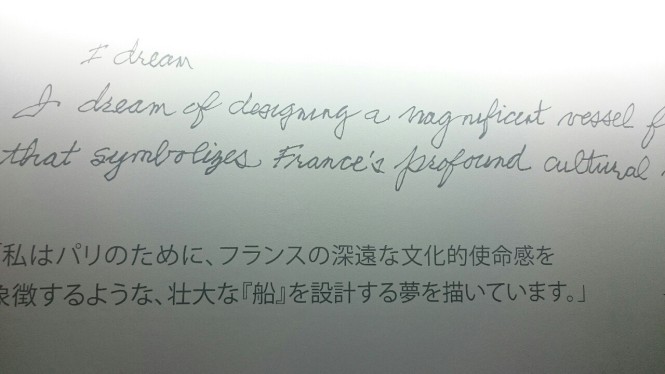 I dream
I dream of designing a magnificent vessel f
that symbolizes France's profound cultural
「私はパリのために、フランスの深遠な文化的使命感を
象徴するような、壮大な『船』を設計する夢を描いています。」